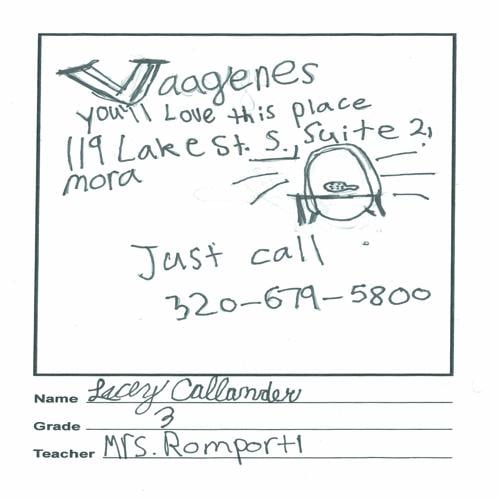 Vaagenes
you'll Love this place
119 Lake St. S., Suite 2,
mora
Just call
320-679-5800
Name Lacey Callander
Grade 3
Teacher Mrs. Romportl